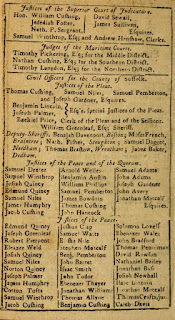 Justices of the Superior Court of Judicature.
Hon. William Cushing, David Sewall,
Jedediah Foster, James Sullivan,
Nath. P. Sergeant, Esquires.
Samuel Winthrop, Esq; and Andrew Henshaw, Clerks.
Judges of the Maritime Court.
Timothy Pickering, Esq; for the Middle District.
Nathan Cushing, Esq; for the Southern District.
Timothy Langdon, Esq; for the Northern District.
Civil Officers for the County of Suffolk.
Justices of the Pleas.
Thomas Cushing, Samuel Niles, Samuel Pemberton,
and Joseph Gardner, Esquires.
Benjamin Lincoln, Esq's; special Justices of the Pleas.
Joseph Palmer,
Ezekiel Price, Clerk of the Pleas and of the Sessions.
William Greenleaf, Esq; Sheriff.
Deputy-Sheriffs, Benjah Davenport, Boston;
Braintree; Nath. Fisher, Stoughton;
Needham; Thomas Bradbow, Wrentham; James Baker,
Dedham.
Justices of the Peace and of the Quorum.
Samuel Dexter Arnold Welles Samuel Adams
Samuel Niles Benjamin Austin John Adams
Josiah Quincy William Phillips Joseph Gardner
Edmund Quincy Samuel Pemberton John Avery
Samuel Niles John Hill Jonathan Metcalf
James Humphry Thomas Cushing Esquires.
Jacob Cushing John Hancock
Justices of the Peace.
Edmund Quincy Joshua Clap Solomon Lovell
Joseph Greenleaf Samuel Watts Ebenezer
Robert Pierpont Eli John Bradford
Eleazer Weld Stephen Metcalf Thomas Penniman
Josiah Quincy Benj. Pemberton David Rawson
Samuel Niles John Baker Nathaniel Bailey
Norton Quincy Isaac Smith Jonathan
Joseph Palmer John Tudor Josiah Newhall
James Humphry Ebenezer Thayer Isaac
Cotton Tufts Jonathan Williams Lorther Metcalf
Samuel Winthrop Thomas Allyne Thomas Crafts, jun.
Jacob Cushing Benjamin Cushing Caleb Davis